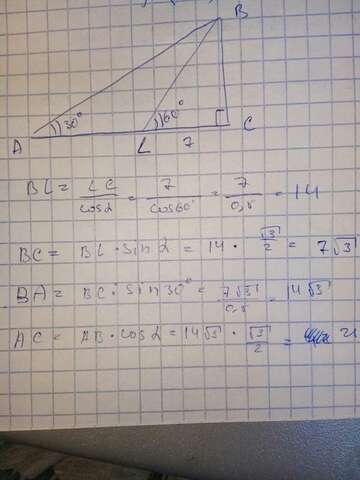 B
30° 60°
A L 7 C
BL = LC/cosα = 7/cos60° = 7/0,5 = 14
BC = BL · sinα = 14 · √3/2 = 7√3
BA = BC · sin30° = 7√3/0,5 = 14√3
AC = AB · cosα = 14√3 · √3/2 = 21